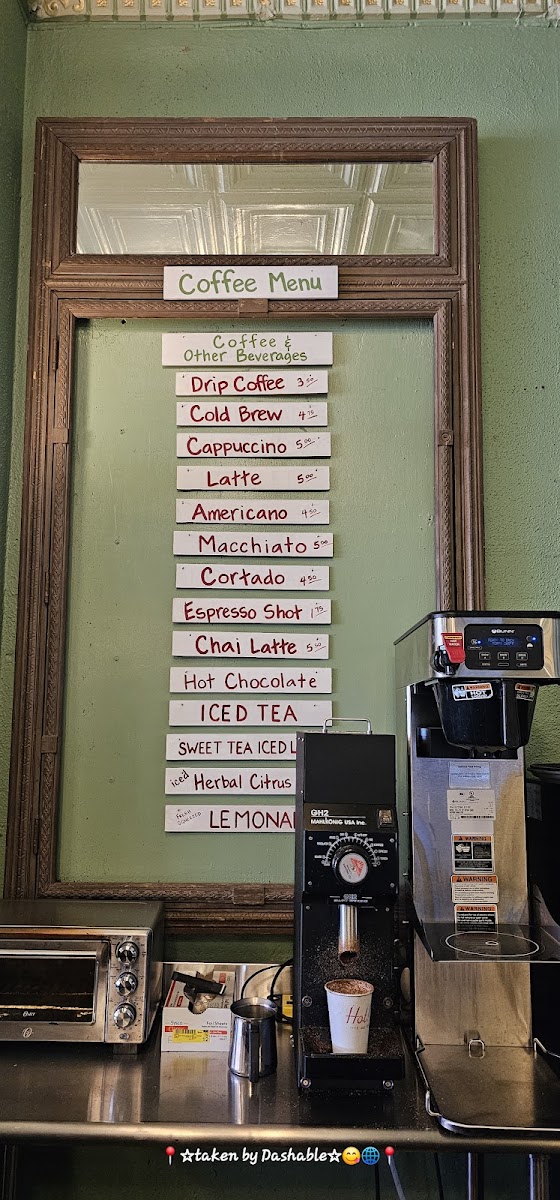 Coffee Menu
Coffee &
Other Beverages
Drip Coffee 3.50
Cold Brew 4.75
Cappuccino 5.00
Latte 5.00
Americano 4.50
Macchiato 5.00
Cortado 4.50
Espresso Shot 1.75
Chai Latte 5.50
Hot Chocolate
ICED TEA
SWEET TEA ICED L
iced Herbal Citrus
FRESH SQUEEZED LEMONA
BUNN
GH2
MAHLKÖNIG USA Inc.
WARNING
WARNING
WARNING
Oster
Hot
📍☆taken by Dashable☆😋🌐📍